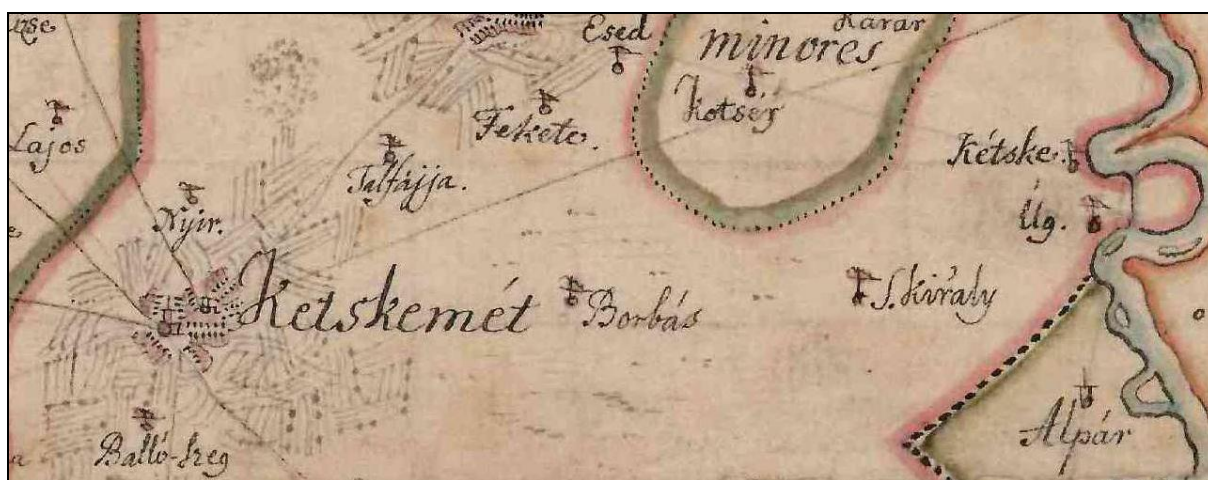 Esed
Karar
minores
Lajos
Fekete.
Kotsér
Kétske.
Talfájja.
Nyir.
Úg.
Ketskemét
Borbás
S. Király
Alpár
Balló-szeg